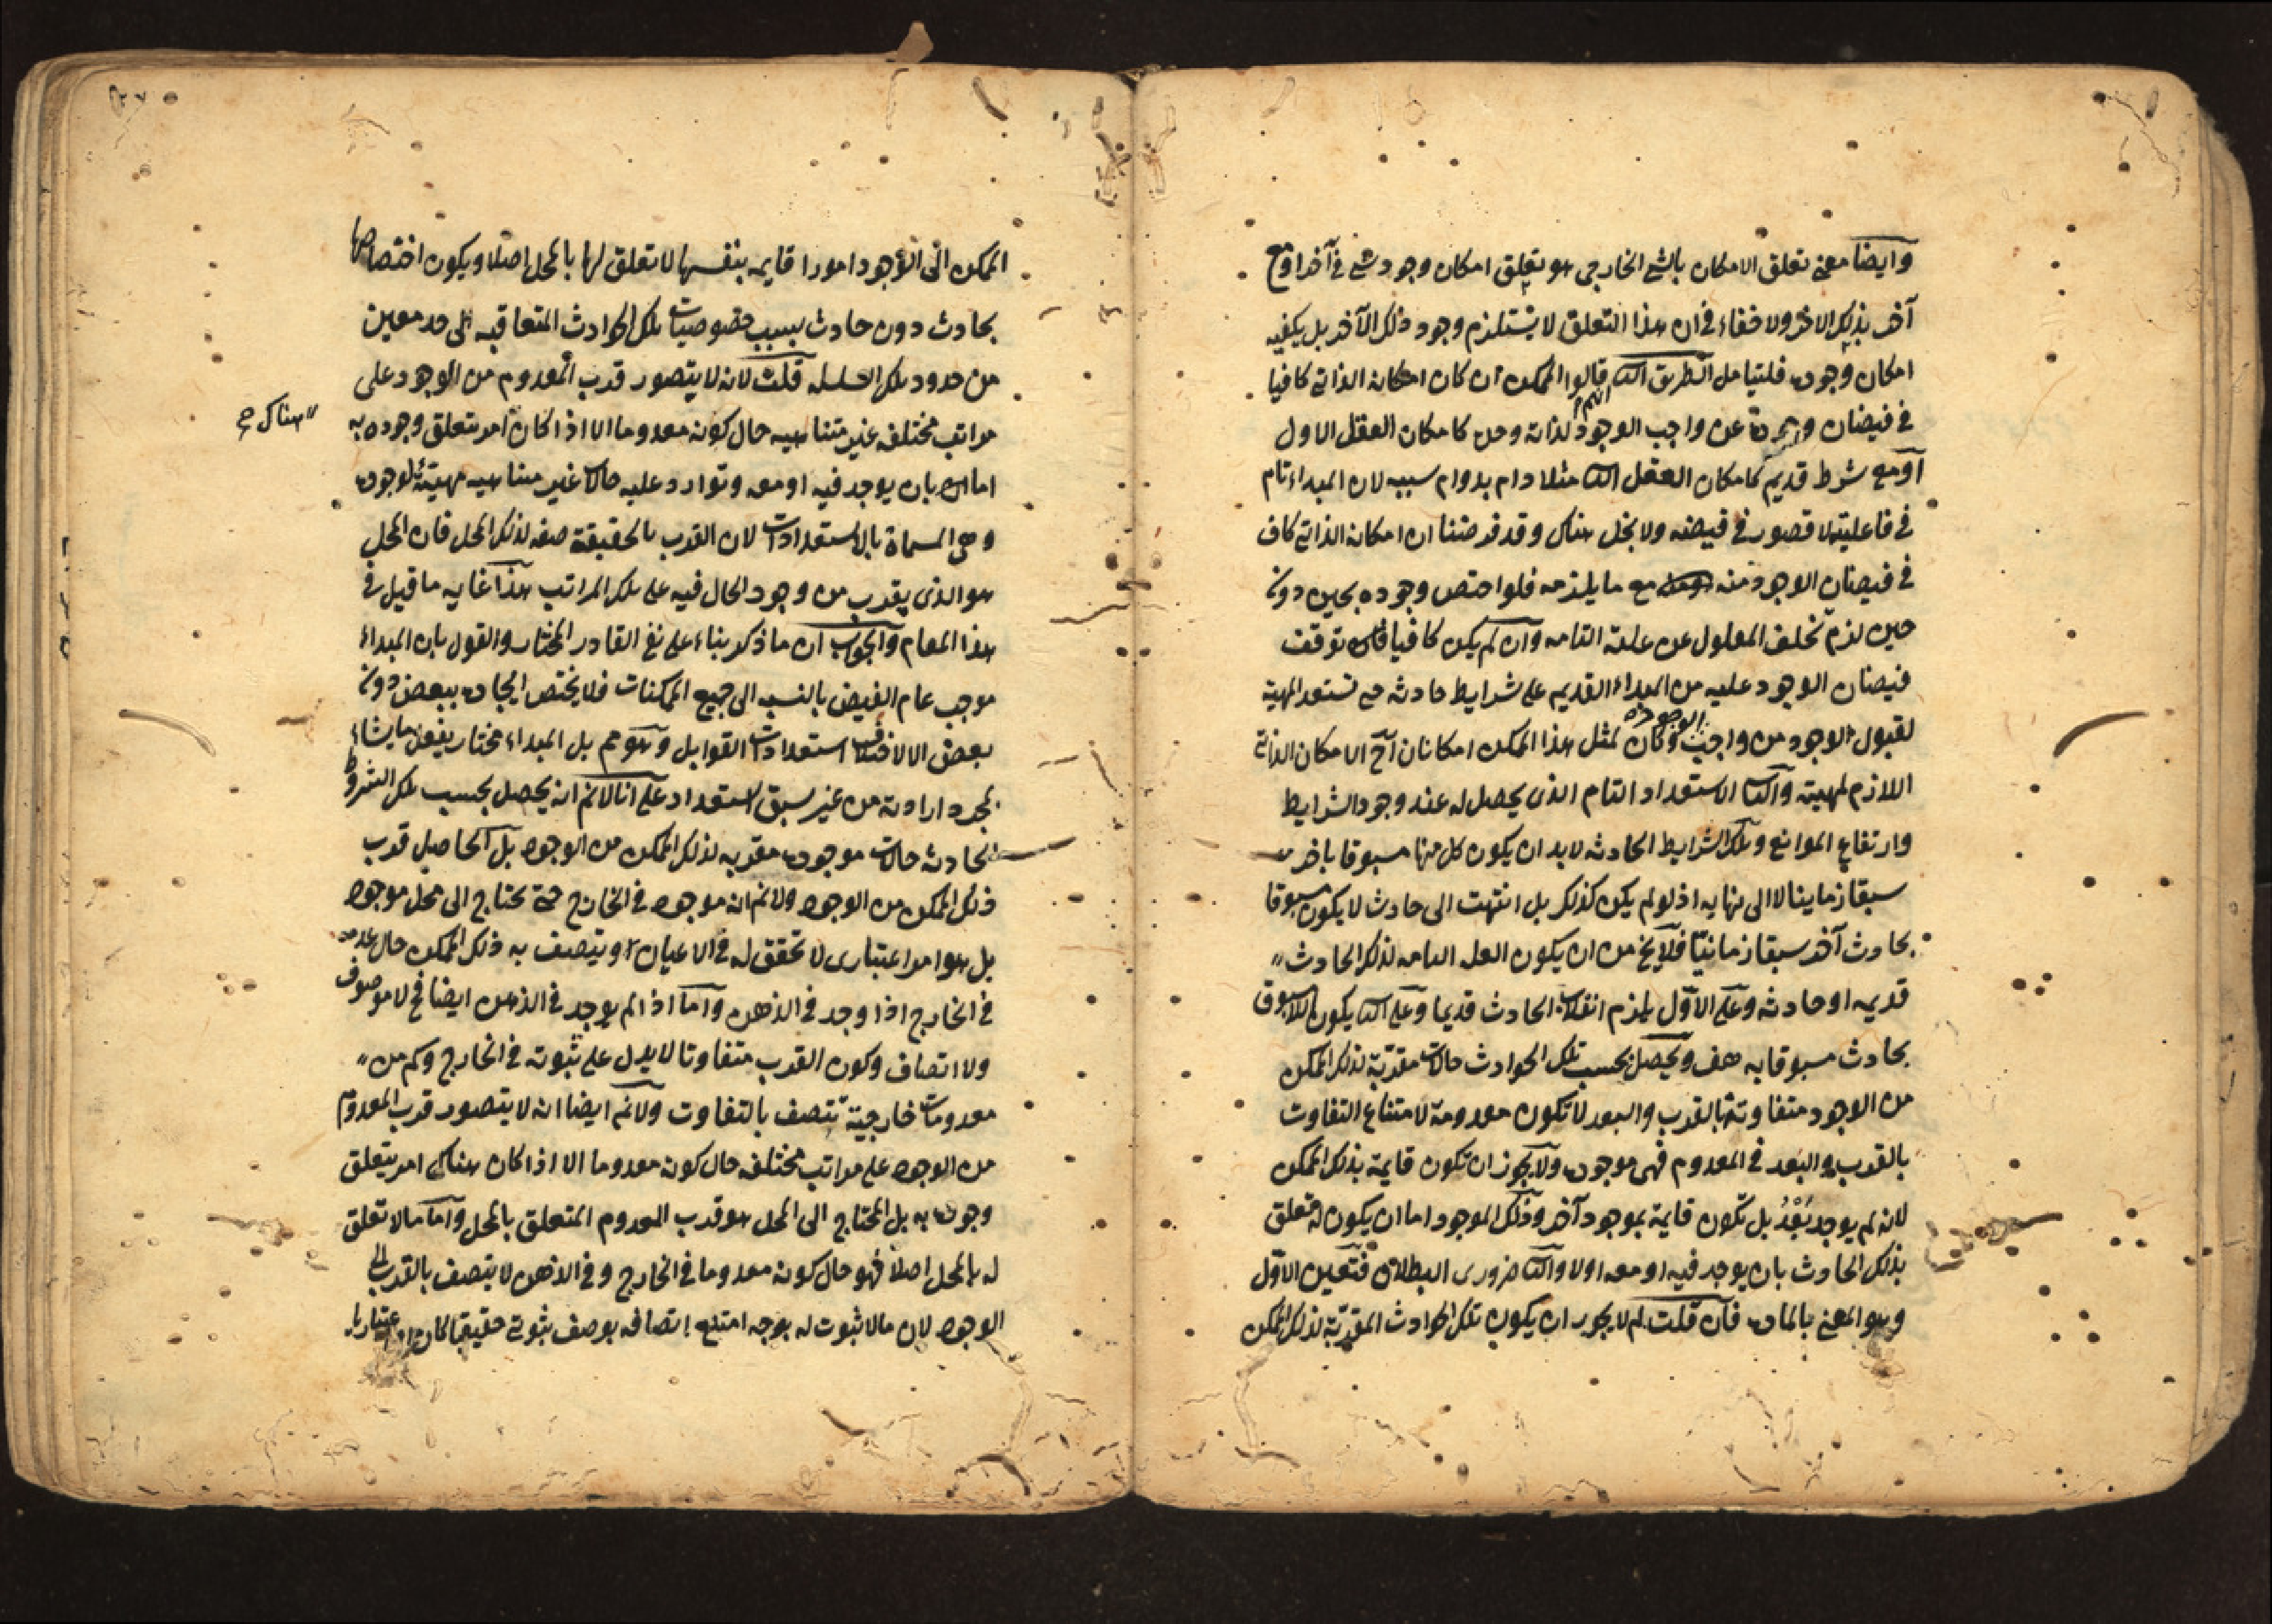 وايضا معنى تعلق الامكان بالشئ الخارجى هو تعلق امكان وجود شئ فى آخر او مع
آخر بذلك الاخر ولا خفاء فى ان هذا التعلق لا يستلزم وجود ذلك الآخر بل يكفيه
امكان وجوده فليتامل الطريق الثا قالوا الممكن ان كان امكانه الذاتى كافيا
فى فيضان وجوده عن واجب الوجود لذاته وحده كامكان العقل الاول
او مع شرط قديم كامكان العقل الثا مثلا دام بدوام سببه لان المبداء تام
فى فاعليته لا قصور فى فيضه ولا بخل هناك وقد فرضنا ان امكانه الذاتى كاف
فى فيضان الوجود منه مع ما يلزمه فلو اختص وجوده بحين دون
حين لزم تخلف المعلول عن علته التامه وان لم يكن كافيا توقف
فيضان الوجود عليه من المبداء القديم على شرايط حادثه حتى تستعد المهية
لقبول الوجود من واجب الوجود وكان لمثل هذا الممكن امكانان آح الامكان الذاتى
اللازم لمهيته والثا الاستعداد التام الذى يحصل له عند وجود الشرايط
وارتفاع الموانع وتلك الشرايط الحادثه لا بد ان يكون كل منها مسبوقا باخر
سبقا زمانيا لا الى نهايه اذ لو لم يكن كذلك بل انتهت الى حادث لا يكون مسبوقا
بحادث آخر سبقا زمانيا فلا يخ من ان يكون العله التامه لذلك الحادث
قديمه او حادثه وعلى الاول يلزم انقلاب الحادث قديما وعلى الثا يكون
بحادث مسبوقا به هف ويحصل بحسب تلك الحوادث حالات مقربة لذلك الممكن
من الوجود متفاوتة بالقرب والبعد لا تكون معدومة لامتناع التفاوت
بالقرب والبعد فى المعدوم فهى موجوده ولا يجوز ان تكون قايمة بذلك الممكن
لانه لم يوجد بعد بل تكون قايمة بموجود آخر وذلك الموجود اما ان يكون له تعلق
بذلك الحادث بان يوجد فيه او معه اولا والثا ضرورى البطلان فتعين الاول
وهو المعنى بالماده فان قلت لم لا يجوز ان يكون تلك الحوادث المقربة لذلك الممكن
الممكن الى الوجود امورا قايمه بنفسها لا تعلق لها بالمحل اصلا ويكون اختصاصها
بحادث دون حادث بسبب خصوصيات تلك الحوادث المتعاقبه الى حد معين
من حدود تلك السلسله قلت لانه لا يتصور قرب المعدوم من الوجود على
مراتب مختلفه غير متناهيه حال كونه معدوما الا اذا كان امر يتعلق وجوده به
هناك
اما ان بان يوجد فيه او معه وتوارد عليه حالات غير متناهيه مهيئة لوجوده
وهى المسماة بالاستعدادات لان القرب بالحقيقة صفه لذلك المحل فان المحل
هو الذى يقرب من وجود الحال فيه على تلك المراتب هذا غايه ما قيل فى
هذا المقام والجواب ان ما ذكر بناء على نفى القادر المختار والقول بان المبداء
موجب عام الفيض بالنسبه الى جميع الممكنات فلا يختص ايجاده ببعض دون
بعض الا لاختلاف استعدادات القوابل وهو مم بل المبداء مختار يفعل ما يشاء
بمجرد ارادته من غير سبق استعداد على انا لانم انه يحصل بحسب تلك الشروط
الحادثه حالات موجوده مقربه لذلك الممكن من الوجود بل الحاصل قرب
ذلك الممكن من الوجود ولانم انه موجود فى الخارج حتى يحتاج الى محل موجود
بل هو امر اعتبارى لا تحقق له فى الاعيان او يتصف به ذلك الممكن حال عدمه
فى الخارج اذا وجد فى الذهن واما اذا لم يوجد فى الذهن ايضا فح لا موصوف
ولا اتصاف وكون القرب متفاوتا لا يدل على ثبوته فى الخارج وكم من
معدومات خارجية تتصف بالتفاوت ولانم ايضا انه لا يتصور قرب المعدوم
من الوجود على مراتب مختلفه حال كونه معدوما الا اذا كان هناك امر يتعلق
وجوده به بل المحتاج الى المحل هو قرب المعدوم المتعلق بالمحل واما ما لا تعلق
له بالمحل اصلا فهو حال كونه معدوما فى الخارج وفى الذهن لا يتصف بالقرب الى
الوجود لان ما لا ثبوت له بوجه امتنع اتصافه بوصف ثبوتى حقيقيا كان او اعتباريا